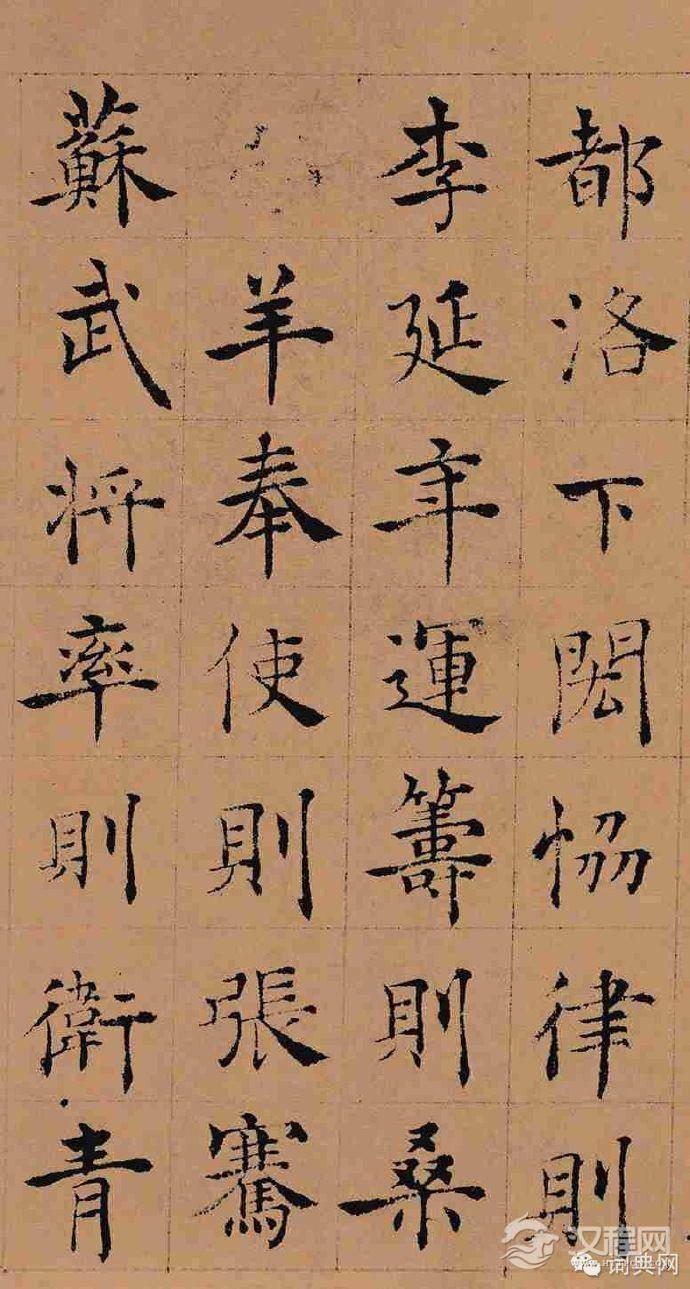 都洛下閎恊律則
李延年運籌則桑
羊奉使則張騫
蘇武将率則衛青
汉程网
词典网